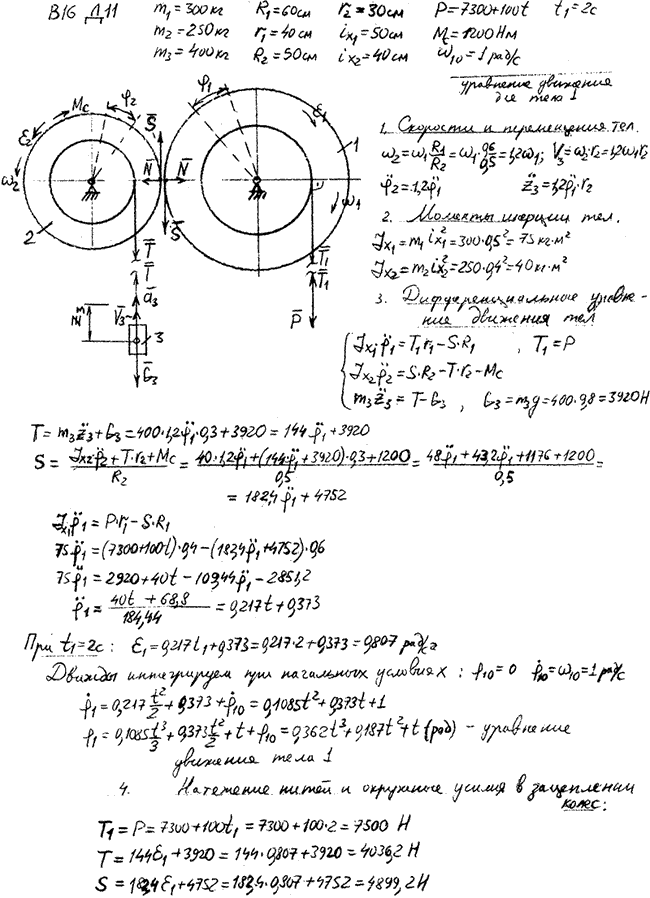 В16 Д11
m₁=300кг R₁=60см r₂=30см P=7300+100t t₁=2с
m₂=250кг r₁=40см iₓ₁=50см M_c=1200Нм
m₃=400кг R₂=50см iₓ₂=40см ω₁₀=1рад/с
уравнение движения
для тела 1
Mc φ₂ S̄ φ₁ ε₁
ε₂ 1
ω₂ N̄ N̄ ω₁
2 S̄
T̄ T̄₁
T̄ T̄₁
ā₃
V̄₃ P̄
3
Ḡ₃
1. Скорости и перемещения тел.
ω₂=ω₁R₁/R₂=ω₁·0,6/0,5=1,2ω₁; V₃=ω₂·r₂=1,2ω₁r₂
φ̈₂=1,2φ̈₁ z̈₃=1,2φ̈₁·r₂
2. Моменты инерции тел.
Jₓ₁=m₁iₓ₁²=300·0,5²=75кг·м²
Jₓ₂=m₂iₓ₂²=250·0,4²=40кг·м²
3. Дифференциальное уравне-
ние движения тел
Jₓ₁φ̈₁=T₁r₁-S·R₁, T₁=P
Jₓ₂φ̈₂=S·R₂-T·r₂-Mc
m₃z̈₃=T-G₃, G₃=m₃g=400·9,8=3920Н
T=m₃z̈₃+G₃=400·1,2φ̈₁·0,3+3920=144φ̈₁+3920
S=(Jₓ₂φ̈₂+T·r₂+Mc)/R₂=(40·1,2φ̈₁+(144φ̈₁+3920)·0,3+1200)/0,5=(48φ̈₁+43,2φ̈₁+1176+1200)/0,5=
=182,4φ̈₁+4752
Jₓ₁φ̈₁=P·r₁-S·R₁
75φ̈₁=(7300+100t)·0,4-(182,4φ̈₁+4752)·0,6
75φ̈₁=2920+40t-109,44φ̈₁-2851,2
φ̈₁=(40t+68,8)/184,44=0,217t+0,373
При t₁=2с: ε₁=0,217t₁+0,373=0,217·2+0,373=0,807рад/с²
Дважды интегрируем при начальных условиях: φ₁₀=0 φ̇₁₀=ω₁₀=1рад/с
φ̇₁=0,217t²/2+0,373+φ̇₁₀=0,1085t²+0,373t+1
φ₁=0,1085t³/3+0,373t²/2+t+φ₁₀=0,362t³+0,187t²+t(рад) - уравнение
движения тела 1
4. Натяжение нитей и окружные усилия в зацеплении
колес:
T₁=P=7300+100t₁=7300+100·2=7500 Н
T=144ε₁+3920=144·0,807+3920=4036,2Н
S=182,4ε₁+4752=182,4·0,807+4752=4899,2Н